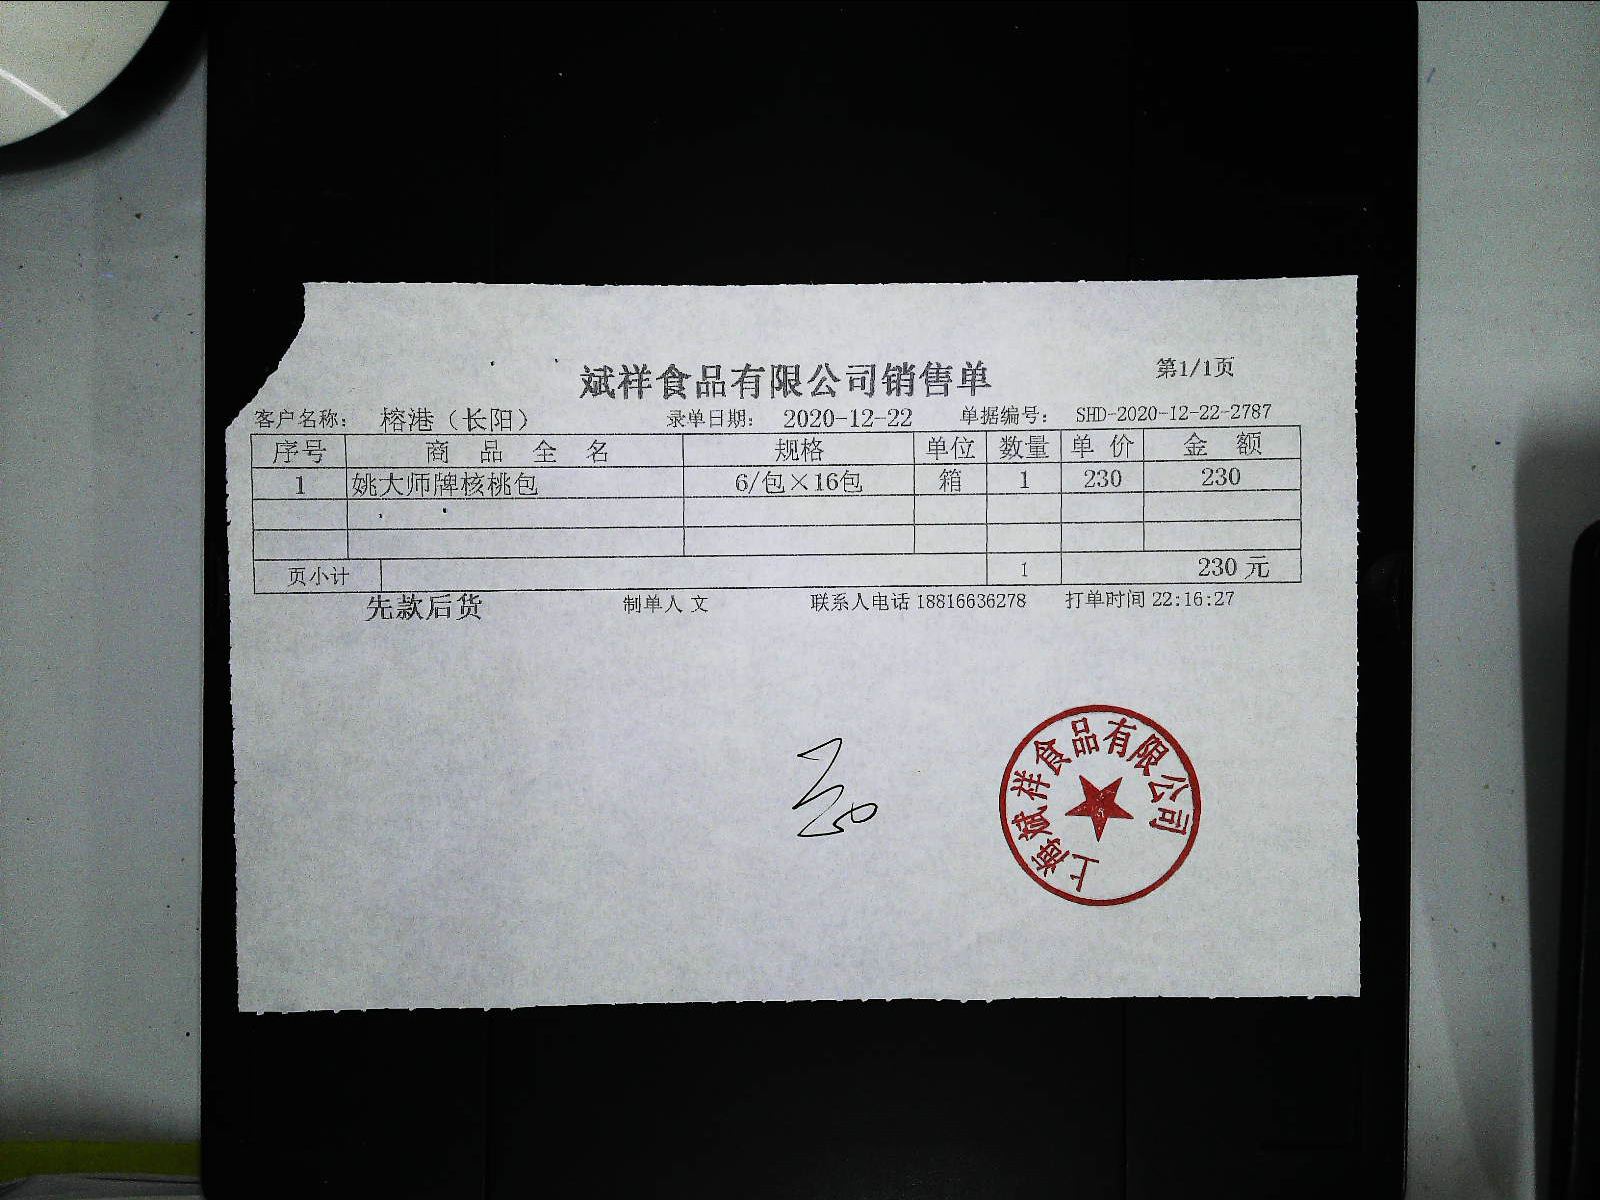 斌祥食品有限公司销售单 第1/1页
客户名称: 榕港（长阳） 录单日期: 2020-12-22 单据编号: SHD-2020-12-22-2787
序号 商品全名 规格 单位 数量 单价 金额
1 姚大师牌核桃包 6/包×16包 箱 1 230 230
页小计 1 230 元
先款后货 制单人 文 联系人电话 18816636278 打单时间 22:16:27
上海斌祥食品有限公司